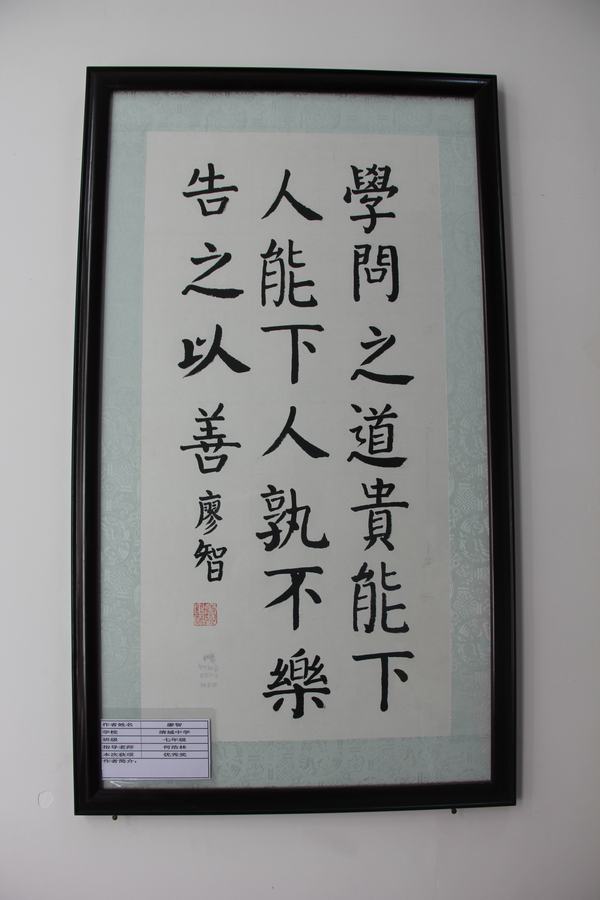 學問之道貴能下
人能下人孰不樂
告之以善廖智
作者姓名 廖智
学校 清城中学
班级 七年级
指导老师 何浩林
本次获项 优秀奖
作者简介：